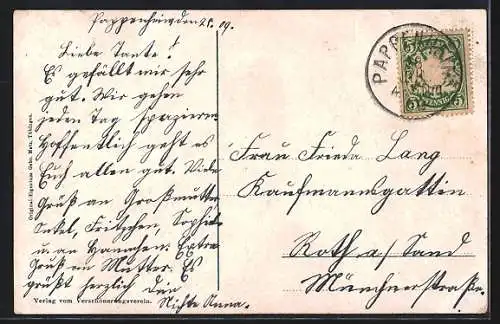 Pappenheim den 21. 09.
Liebe Tante!
Es gefällt mir sehr
gut. Wir gehen
jeden Tag spazieren
Hoffentlich geht es
Euch allen gut. Viele
Grüß an Großmutter,
Onkel, Fritzchen, Sophie
u. an Hannchen. Extra
Gruß an Mutter. Es
grüßt herzlich dein
Nichte Anna.
Verlag vom Verschönerungsverein.
Original-Eigentum Gebr. Metz, Tübingen.
PAPPENHEIM
5 5
5 PFENNIG 5
Frau Frieda Lang
Kaufmannsgattin
Roth a/ Sand
Münchnerstraße.